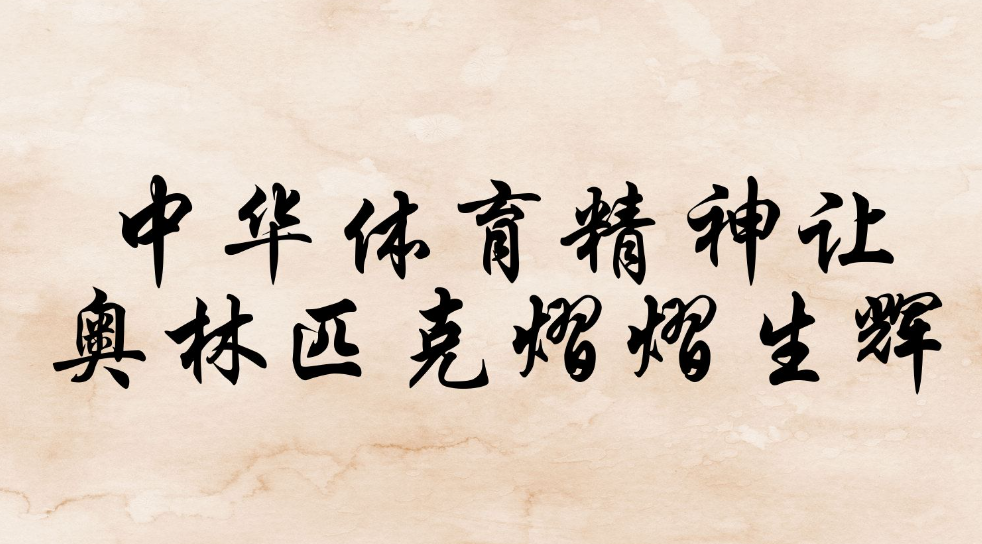 中华体育精神让
奥林匹克熠熠生辉